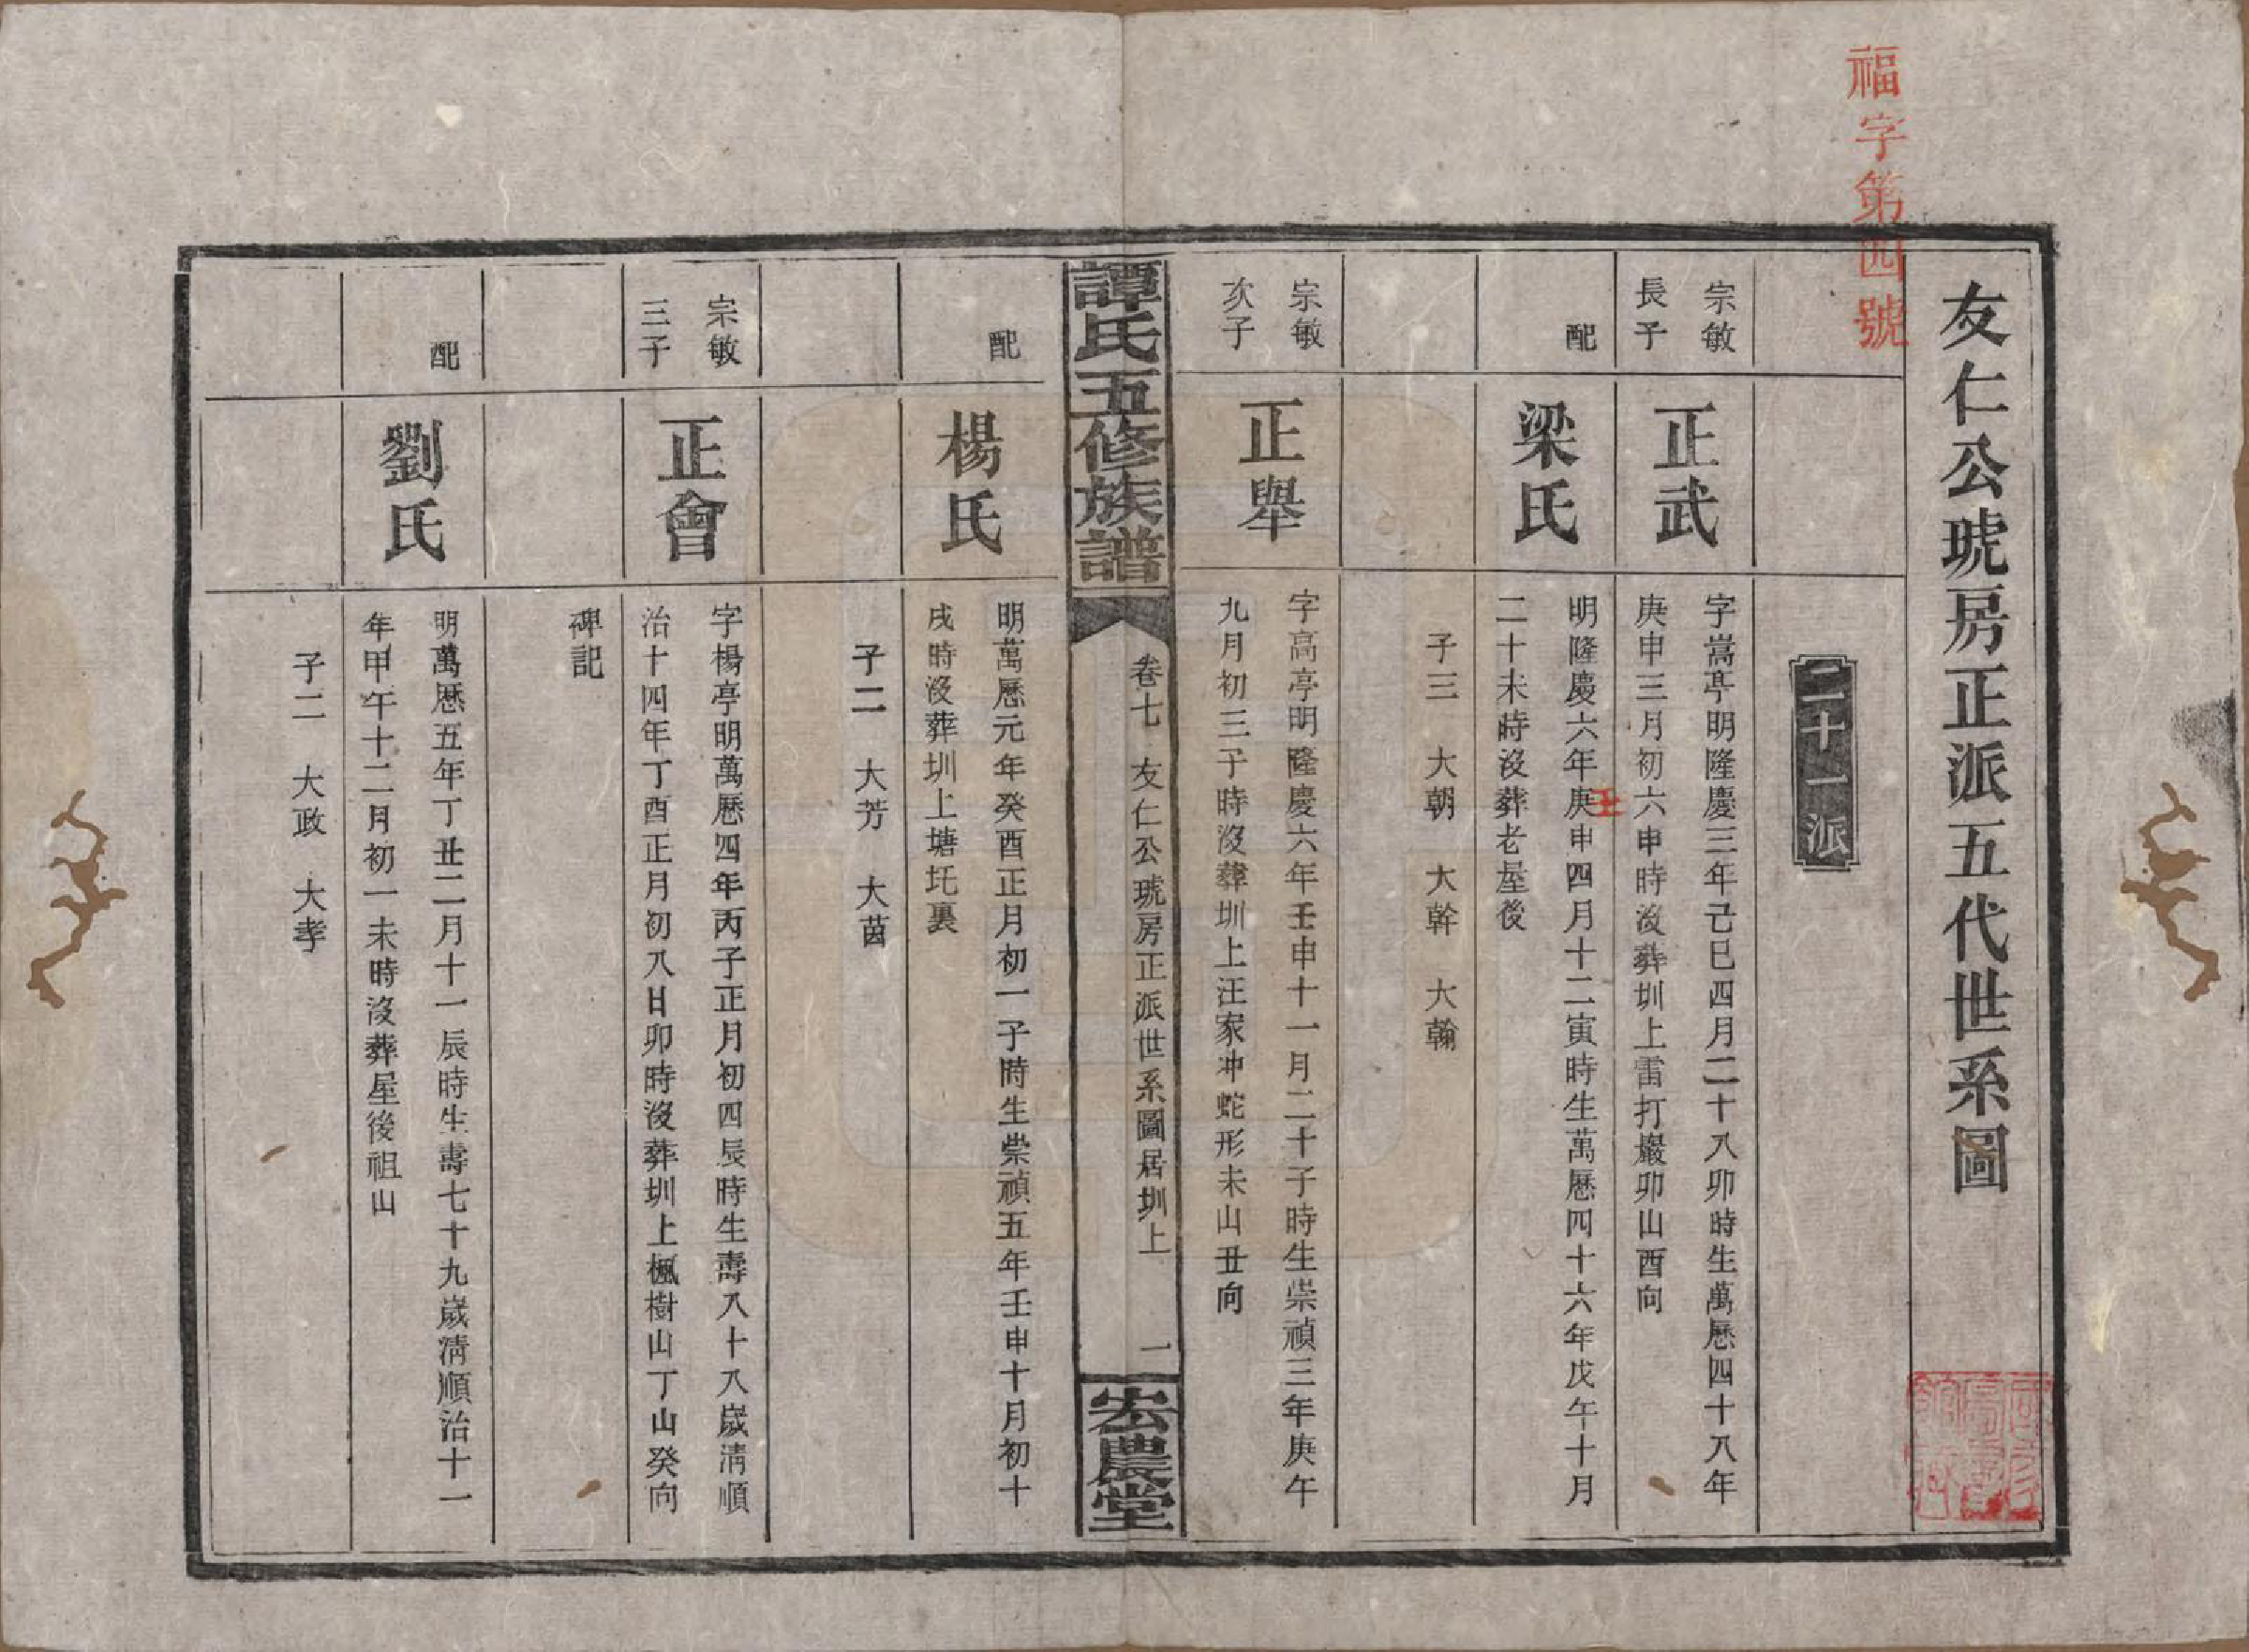 福字第四號
友仁公琥房正派五代世系圖
二十一派
宗敏
長子
正武
字嵩亭明隆慶三年己巳四月二十八卯時生萬厯四十八年
庚申三月初六申時沒葬圳上雷打巖卯山酉向
配
梁氏
明隆慶六年庚申四月十二寅時生萬厯四十六年戊午十月
壬
二十未時沒葬老屋後
子三 大朝 大幹 大翰
宗敏
次子
正舉
字高亭明隆慶六年壬申十一月二十子時生崇禎三年庚午
九月初三子時沒葬圳上汪家冲蛇形未山丑向
譚氏五修族譜
卷七 友仁公琥房正派世系圖居圳上
一
宏農堂
配
楊氏
明萬厯元年癸酉正月初一子時生崇禎五年壬申十月初十
戌時沒葬圳上塘圫裏
子二 大芳 大茵
宗敏
三子
正會
字楊亭明萬厯四年丙子正月初四辰時生壽八十八歲清順
治十四年丁酉正月初八日卯時沒葬圳上楓樹山丁山癸向
碑記
配
劉氏
明萬厯五年丁丑二月十一辰時生壽七十九歲清順治十一
年甲午十二月初一未時沒葬屋後祖山
子二 大政 大孝